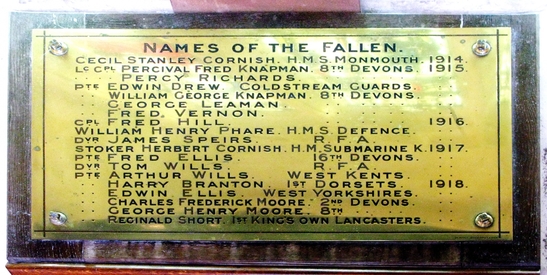 NAMES OF THE FALLEN.
CECIL STANLEY CORNISH. H.M.S. MONMOUTH. 1914.
LCE CPL PERCIVAL FRED KNAPMAN. 8TH DEVONS. 1915.
" " PERCY RICHARDS. " "
PTE EDWIN DREW. COLDSTREAM GUARDS. " "
" " WILLIAM GEORGE KNAPMAN. 8TH DEVONS. " "
" " GEORGE LEAMAN. " " " "
" " FRED VERNON. " " " "
CPL FRED HILL. " " 1916.
WILLIAM HENRY PHARE. H.M.S. DEFENCE. " "
DVR JAMES SPEIRS. R.F.A. " "
STOKER HERBERT CORNISH. H.M. SUBMARINE K. 1917.
PTE FRED ELLIS. 16TH DEVONS. " "
DVR TOM WILLS. R.F.A. " "
PTE ARTHUR WILLS. WEST KENTS. " "
" " HARRY BRANTON. 1ST DORSETS. 1918.
" " EDWIN ELLIS. WEST YORKSHIRES. " "
" " CHARLES FREDERICK MOORE. 2ND DEVONS. " "
" " GEORGE HENRY MOORE. 8TH " " " "
" " REGINALD SHORT. 1ST KING'S OWN LANCASTERS. " "